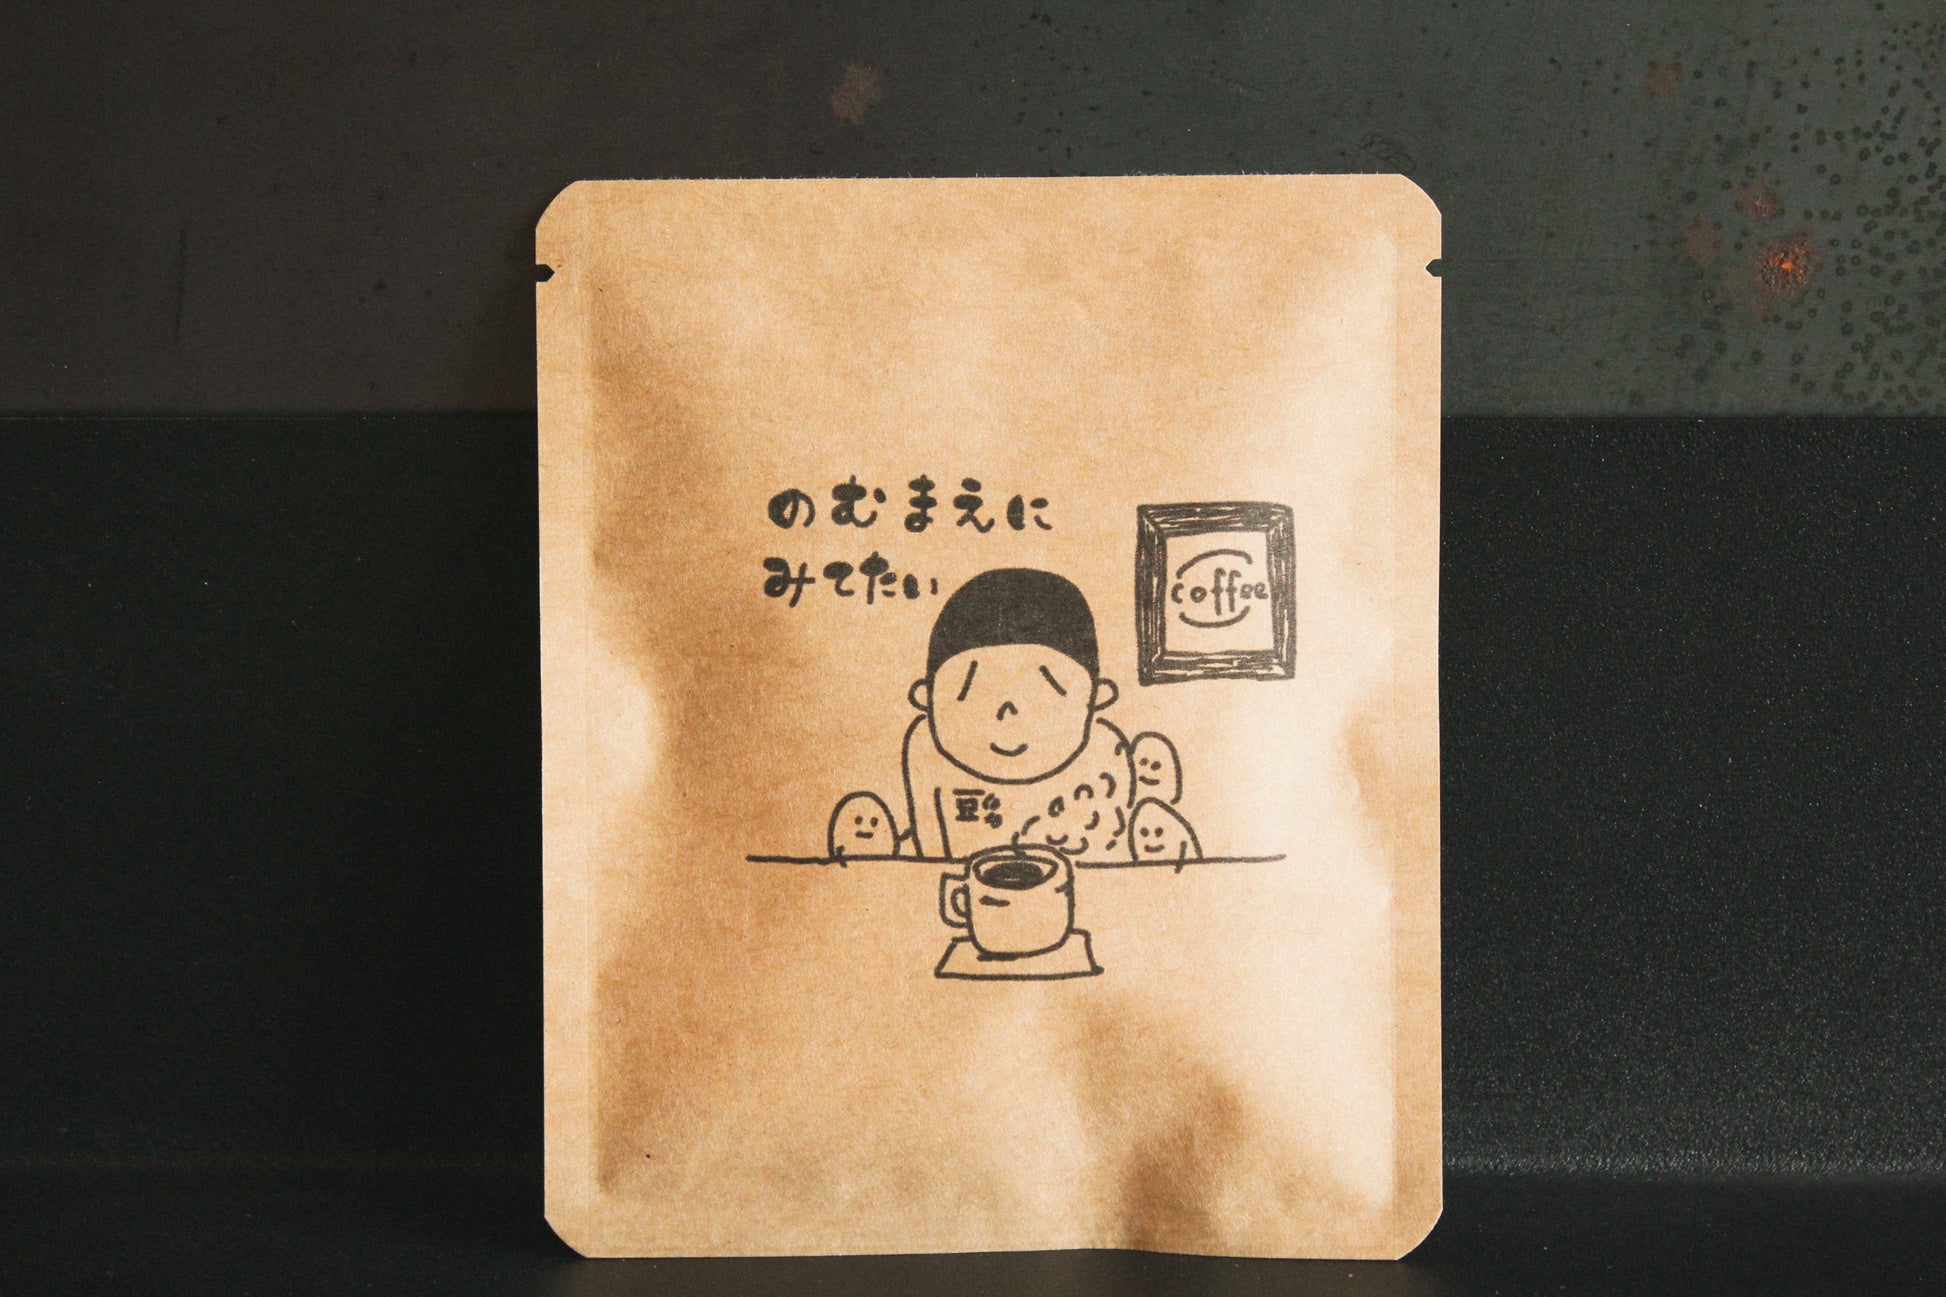 のむまえに
みてたい
coffee
豆